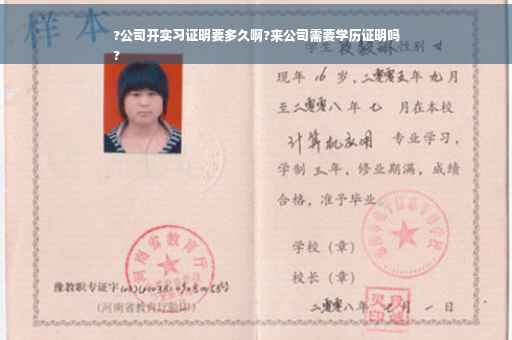 样本
?公司开实习证明要多久啊?来公司需要学历证明吗
?
学生 性别 女
现年 16 岁，二零零五年 九月
至二零零八年 七 月在本校
计算机应用 专业学习，
学制 三年，修业期满，成绩
合格，准予毕业
学校（章）
校长（章）
二零零八年 月 一 日
河南省教育厅
豫教职专证字
（河南省教育厅验印）